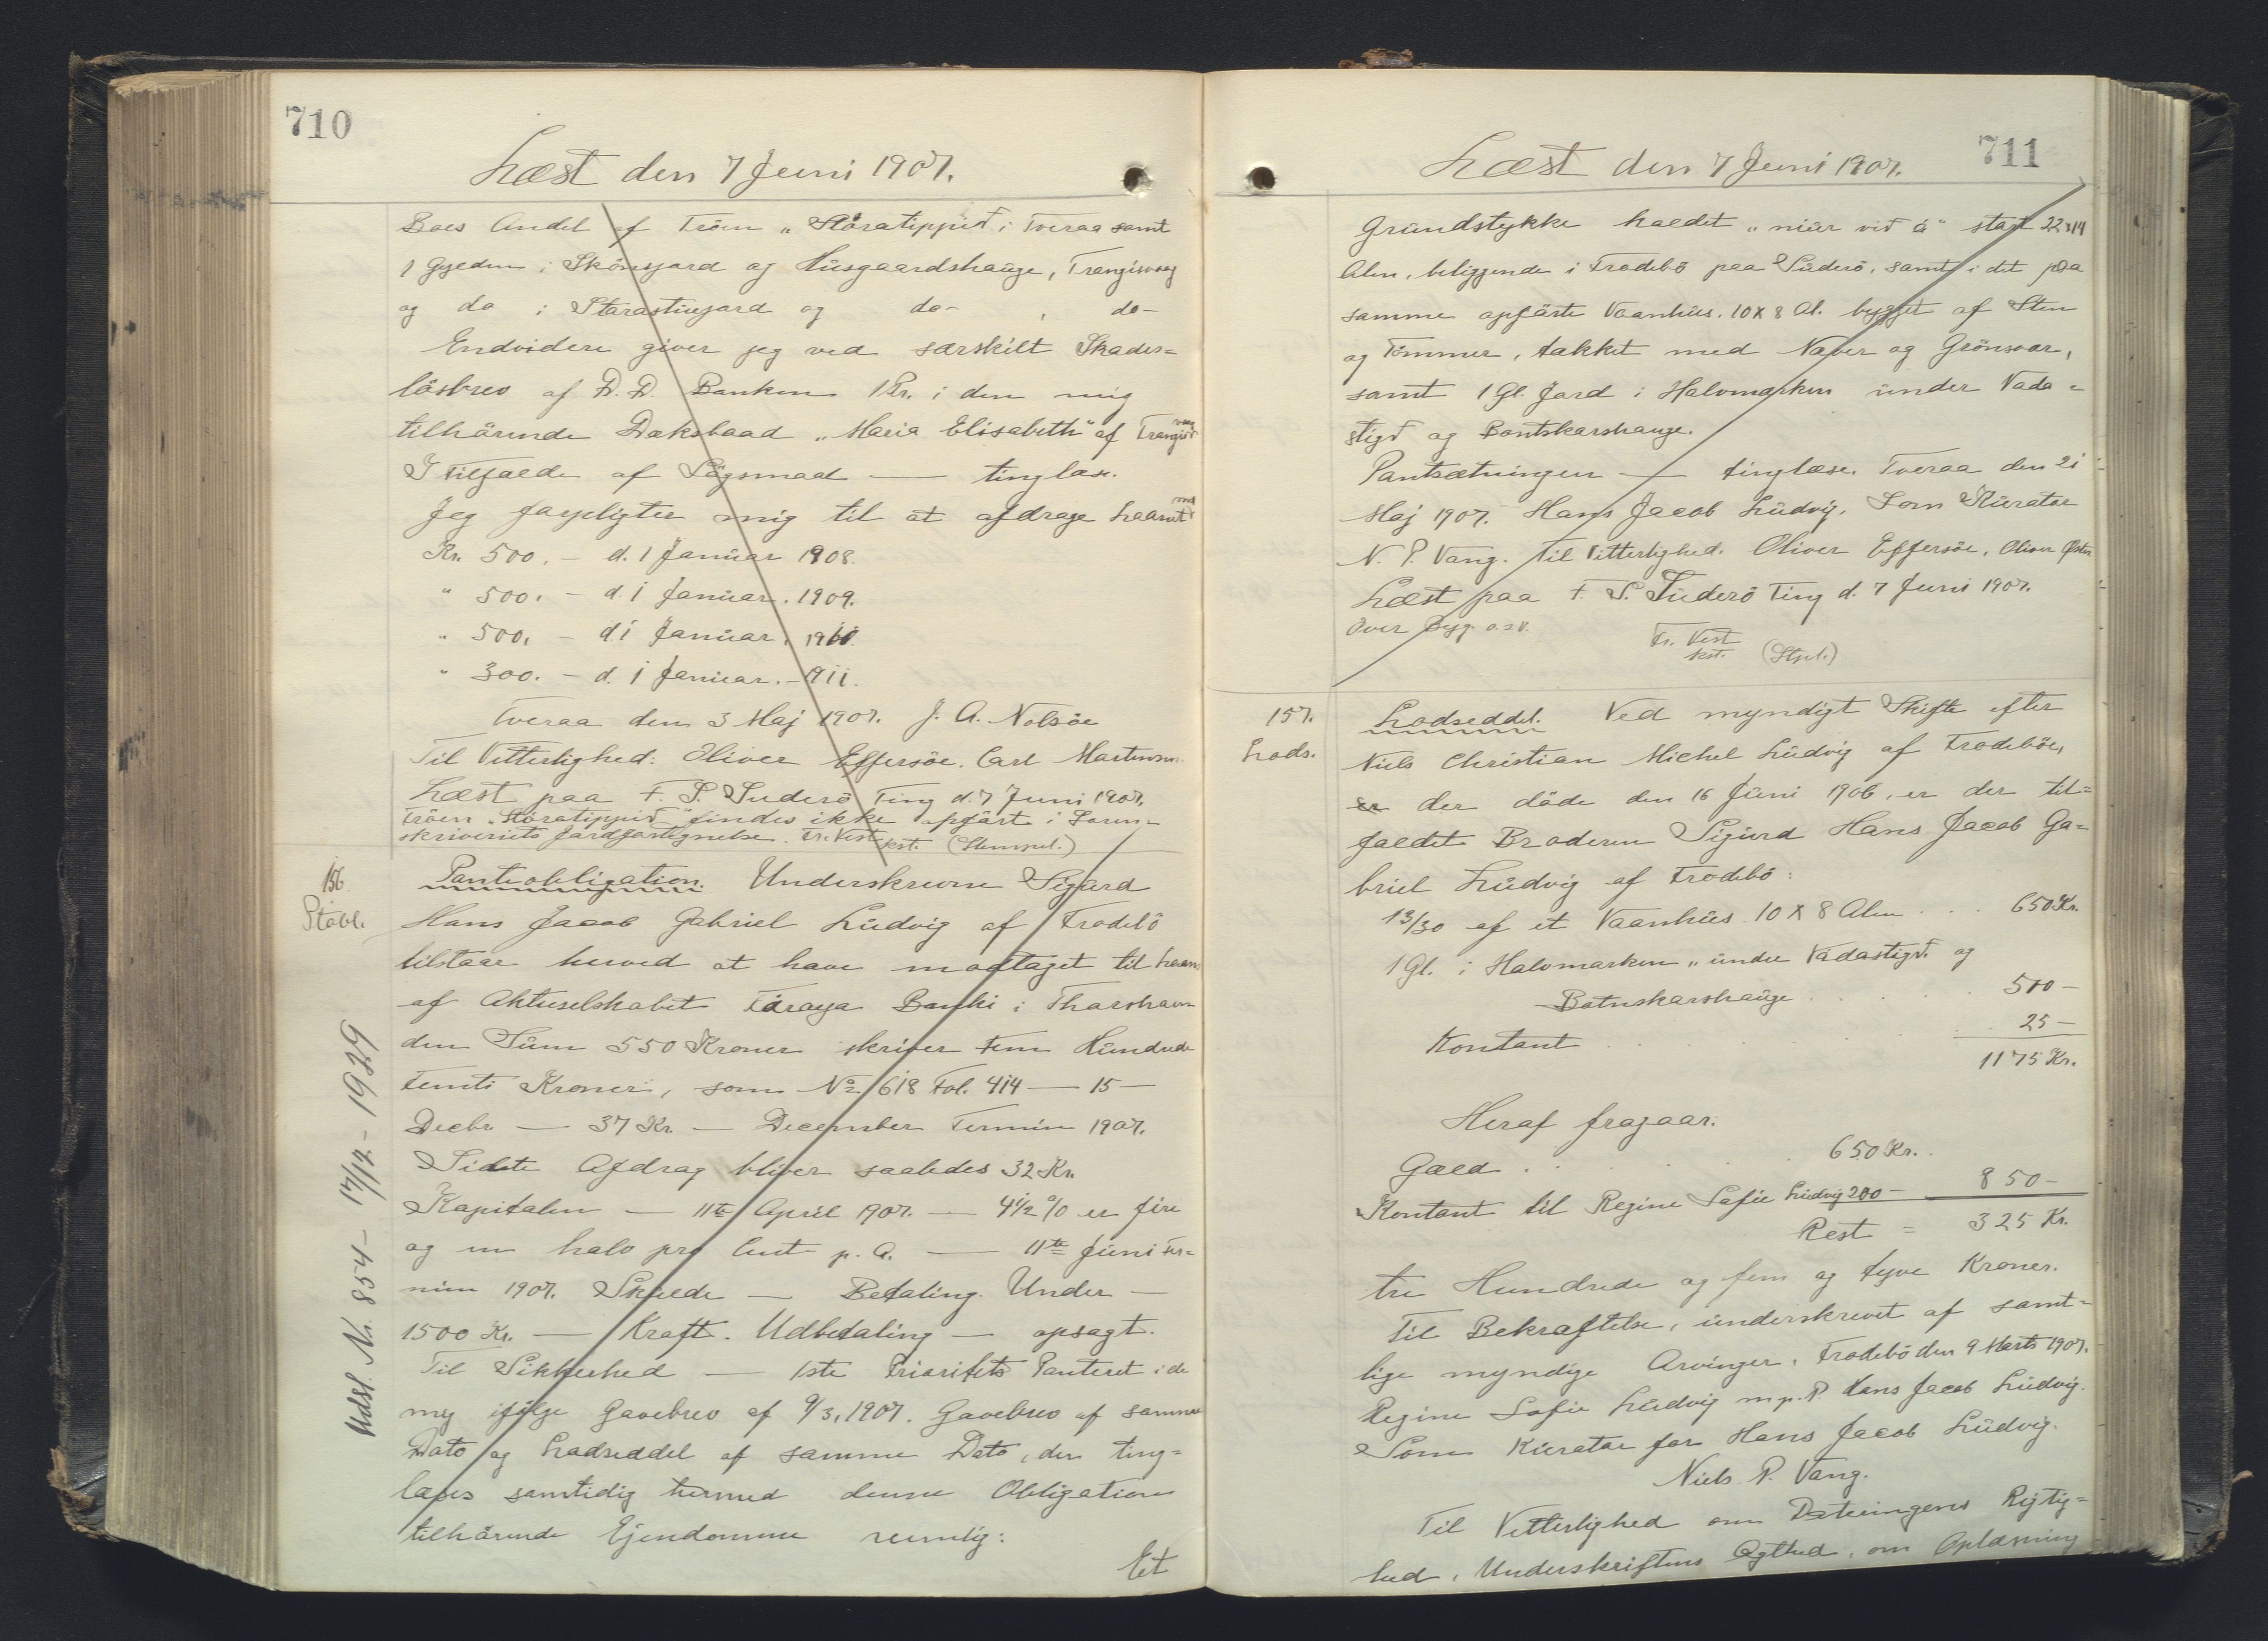 710
Læst den 7 Juni 1907.
Boes Andel af Tröen „Störatippid" i Tveraa samt
1 Gylden i Skönsjard og Húsgaardshauge, Trangisvaag
og do i Starastuejard og do- , do-
Endvidere giver jeg ved særskilt Skades=
lösbrev af D. D. Banken 1 Pr. i den mig
tilhörende Dæksbaad „Maria Elisabeth" af Trangisv
I Tilfælde af Sögsmaal — tinglæse.
Jeg forpligter mig til at afdrage Laanet med
Kr. 500. - d. 1 Januar 1908.
" 500. - d. 1 Januar. 1909.
" 500. - d. 1 Januar. 1910.
" 300. - d. 1 Januar. - 1911.
Tveraa den 3 Maj 1907. J. A. Nolsöe
Til Vitterlighed: Oliver Effersöe. Carl Martensen.
Læst paa F. S. Suderö Ting d. 7 Juni 1907.
Tröen „Störatippid" findes ikke opfört i Soren-
skriveriets Jordfortegnelse. Fr. Vest kst. (Stempel.)
156
Panteobligation. Underskrevne Sigurd
Hans Jacob Gabriel Ludvig af Frodebö
tilstaar herved at have modtaget til Laans
af Aktieselskabet Föroya Banki i Thorshavn
den Sum 550 Kroner skriver Fem Hundrede
Femti Kroner, som No 618 Fol. 414 — 15 —
Decbr. — 37 Kr — December Termin 1907.
Sidste Afdrag bliver saaledes 32 Kr.
Kapitalen — 11te April 1907. — 4½ % er fire
og en halv pro Cent p. A. — 11te Juni Ter=
min 1907. Skulde — Betaling. Under —
1500 Kr. — Kraft. Udbetaling — opsagt.
Til Sikkerhed — 1ste Prioritets Panteret i de
mig ifölge Gavebrev af 9/3, 1907. Gavebrev af samme
Dato og Lodseddel af samme Dato, der ting=
læses samtidig hermed denne Obligation
tilhörende Ejendomme nemlig:
Et
Udsl. Nr. 854 - 17/12 - 1929
711
Læst den 7 Juni 1907.
Grundstykke kaldet „niür vid á" stort 22x14
Alen, beliggende i Frodebö paa Suderö, samt i det paa
samme opförte Vaanhus. 10 x 8 Al. bygget af Sten
og Tömmer, takket med Næver og Grönsvær,
samt 1 Gl. Jord i Halvmarken under Vada=
stigd og Bontskarshauge.
Pantsætningen — tinglæse. Tveraa den 21
Maj 1907. Hans Jacob Ludvig. Som Kurator
N. P. Vang. Til Vitterlighed. Oliver Effersöe, Oliver Öster
Læst paa F. S. Suderö Ting d. 7 Juni 1907.
Över Byg. o.s.v.
Fr. Vest
kst. (Stpl.)
157.
Lods.
Lodseddel. Ved myndigt Skifte efter
Niels Christian Michel Ludvig af Frodeböe,
er der döde den 16 Juni 1906, er der til=
faldet Broderen Sigurd Hans Jacob Ga=
briel Ludvig af Frodebö:
13/30 af et Vaanhus 10 x 8 Alen . . . 650 Kr.
1 Gl. i Halvmarken „under Vadastigd. og
Botnskarshauge . . . . . 500 —
Kontant . . . . . . 25 —
1175 Kr.
Heraf fragaar:
Gæld . . . . . . 650 Kr.
Kontant til Regine Sofie Ludvig 200 — 850 —
Rest = 325 Kr.
tre Hundrede og fem og tyve Kroner.
Til Bekræftelse, underskrevet af samt=
lige myndige Arvinger. Frodebö den 9 Marts 1907.
Regine Sofie Ludvig m.p.P. Hans Jacob Ludvig.
Som Kurator for Hans Jacob Ludvig.
Niels P. Vang.
Til Vitterlighed om Dateringens Rigtig=
hed, Underskriftens Ægthed, om Oplæsning